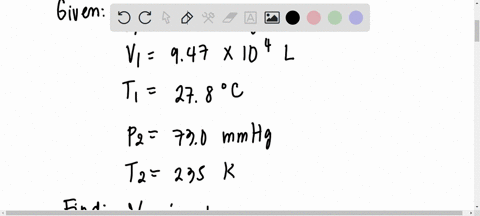 Given:
V₁ = 9.47 × 10⁴ L
T₁ = 27.8 °C
P₂ = 73.0 mmHg
T₂ = 235 K
Find: